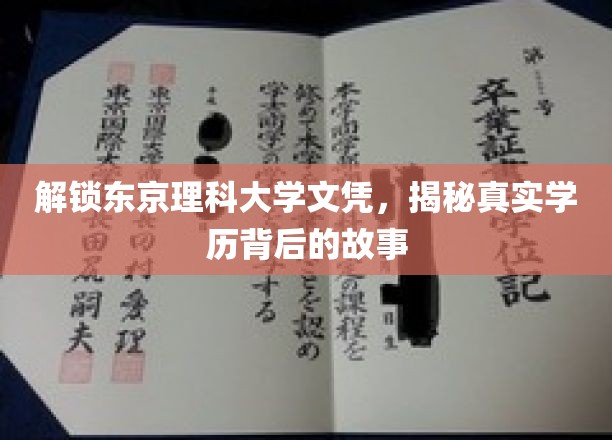 解锁东京理科大学文凭，揭秘真实学
历背后的故事
第 号
卒業証 学位記
本学商学部 定の課程を
修めて本学を ことを認め
学士(商学)の する
平成
日生
東京国際大学 長 田村愛理
東京国際大学 長 田尻嗣夫